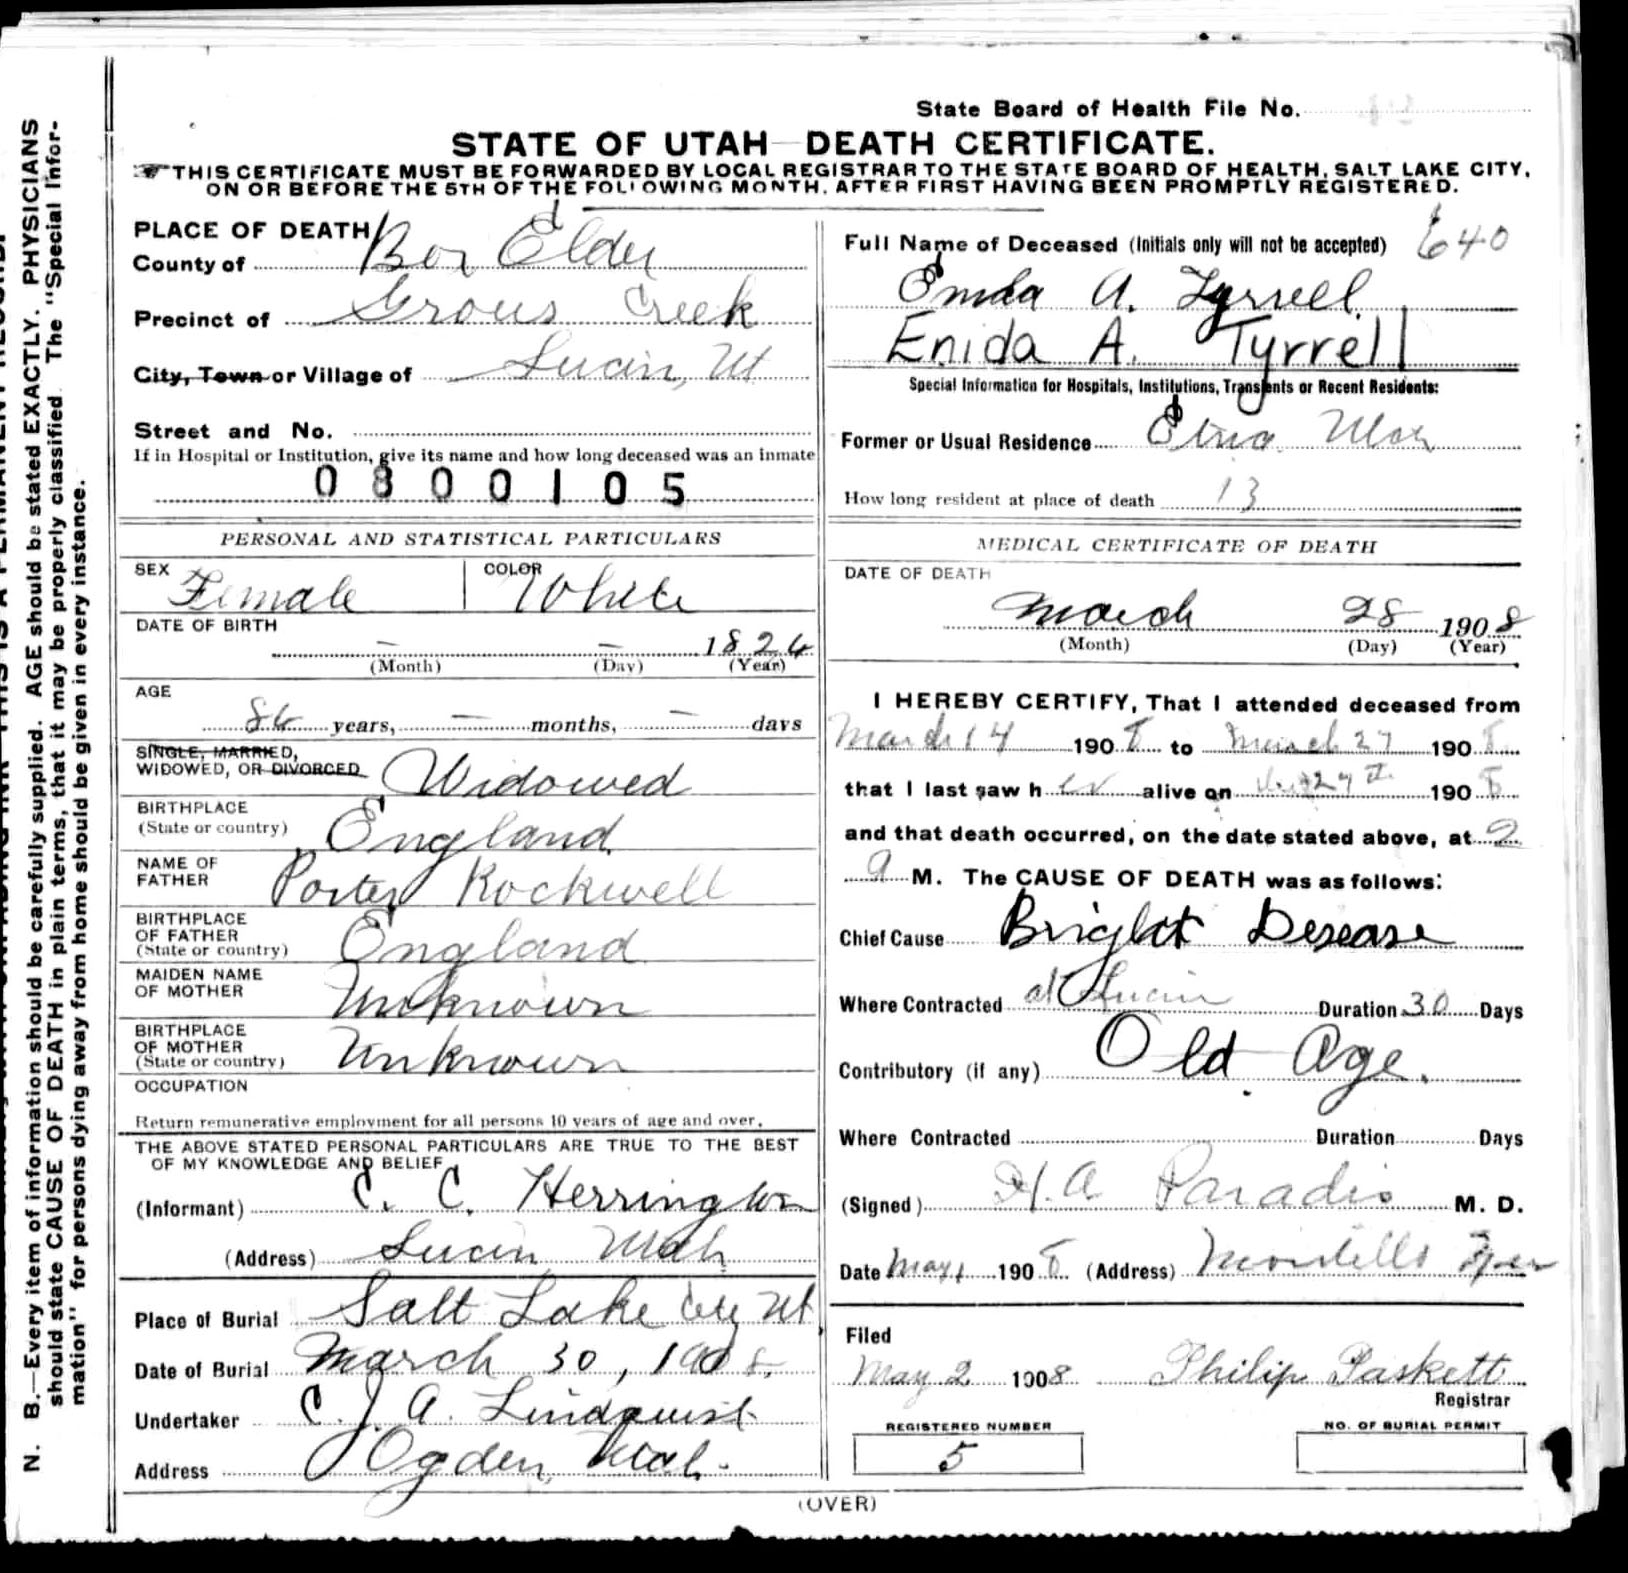 State Board of Health File No.
STATE OF UTAH—DEATH CERTIFICATE.
THIS CERTIFICATE MUST BE FORWARDED BY LOCAL REGISTRAR TO THE STATE BOARD OF HEALTH, SALT LAKE CITY,
ON OR BEFORE THE 5TH OF THE FOLLOWING MONTH, AFTER FIRST HAVING BEEN PROMPTLY REGISTERED.
PLACE OF DEATH
County of Box Elder
Precinct of Grous Creek
City, Town or Village of Lucin, Ut
Street and No.
If in Hospital or Institution, give its name and how long deceased was an inmate
0800105
PERSONAL AND STATISTICAL PARTICULARS
SEX Female COLOR White
DATE OF BIRTH
— — 1824
(Month) (Day) (Year)
AGE
84 years, — months, — days
SINGLE, MARRIED,
WIDOWED, OR DIVORCED Widowed
BIRTHPLACE
(State or country) England
NAME OF
FATHER Porter Rockwell
BIRTHPLACE
OF FATHER
(State or country) England
MAIDEN NAME
OF MOTHER Unknown
BIRTHPLACE
OF MOTHER
(State or country) Unknown
OCCUPATION
Return remunerative employment for all persons 10 years of age and over.
THE ABOVE STATED PERSONAL PARTICULARS ARE TRUE TO THE BEST
OF MY KNOWLEDGE AND BELIEF
(Informant) C. C. Herrington
(Address) Lucin Utah
Place of Burial Salt Lake City Ut.
Date of Burial March 30, 1908.
Undertaker C. J. A. Lindquist
Address Ogden, Utah.
Full Name of Deceased (Initials only will not be accepted) 640
Enida A. Tyrrell
Enida A. Tyrrell
Special Information for Hospitals, Institutions, Transients or Recent Residents:
Former or Usual Residence Etna Utah
How long resident at place of death 13
MEDICAL CERTIFICATE OF DEATH
DATE OF DEATH
March 28 1908
(Month) (Day) (Year)
I HEREBY CERTIFY, That I attended deceased from
March 14 1908 to March 27 1908
that I last saw her alive on 27th 1908
and that death occurred, on the date stated above, at 2
a M. The CAUSE OF DEATH was as follows:
Chief Cause Bright Desease
Where Contracted at Lucin Duration 30 Days
Contributory (if any) Old Age.
Where Contracted Duration Days
(Signed) H. A Paradis M. D.
Date May 1 1908 (Address) Montello Nev
Filed
May 2 1908 Philip Paskett
Registrar
REGISTERED NUMBER NO. OF BURIAL PERMIT
5
(OVER)
N. B.—Every item of information should be carefully supplied. AGE should be stated EXACTLY. PHYSICIANS
should state CAUSE OF DEATH in plain terms, that it may be properly classified. The "Special Infor-
mation" for persons dying away from home should be given in every instance.